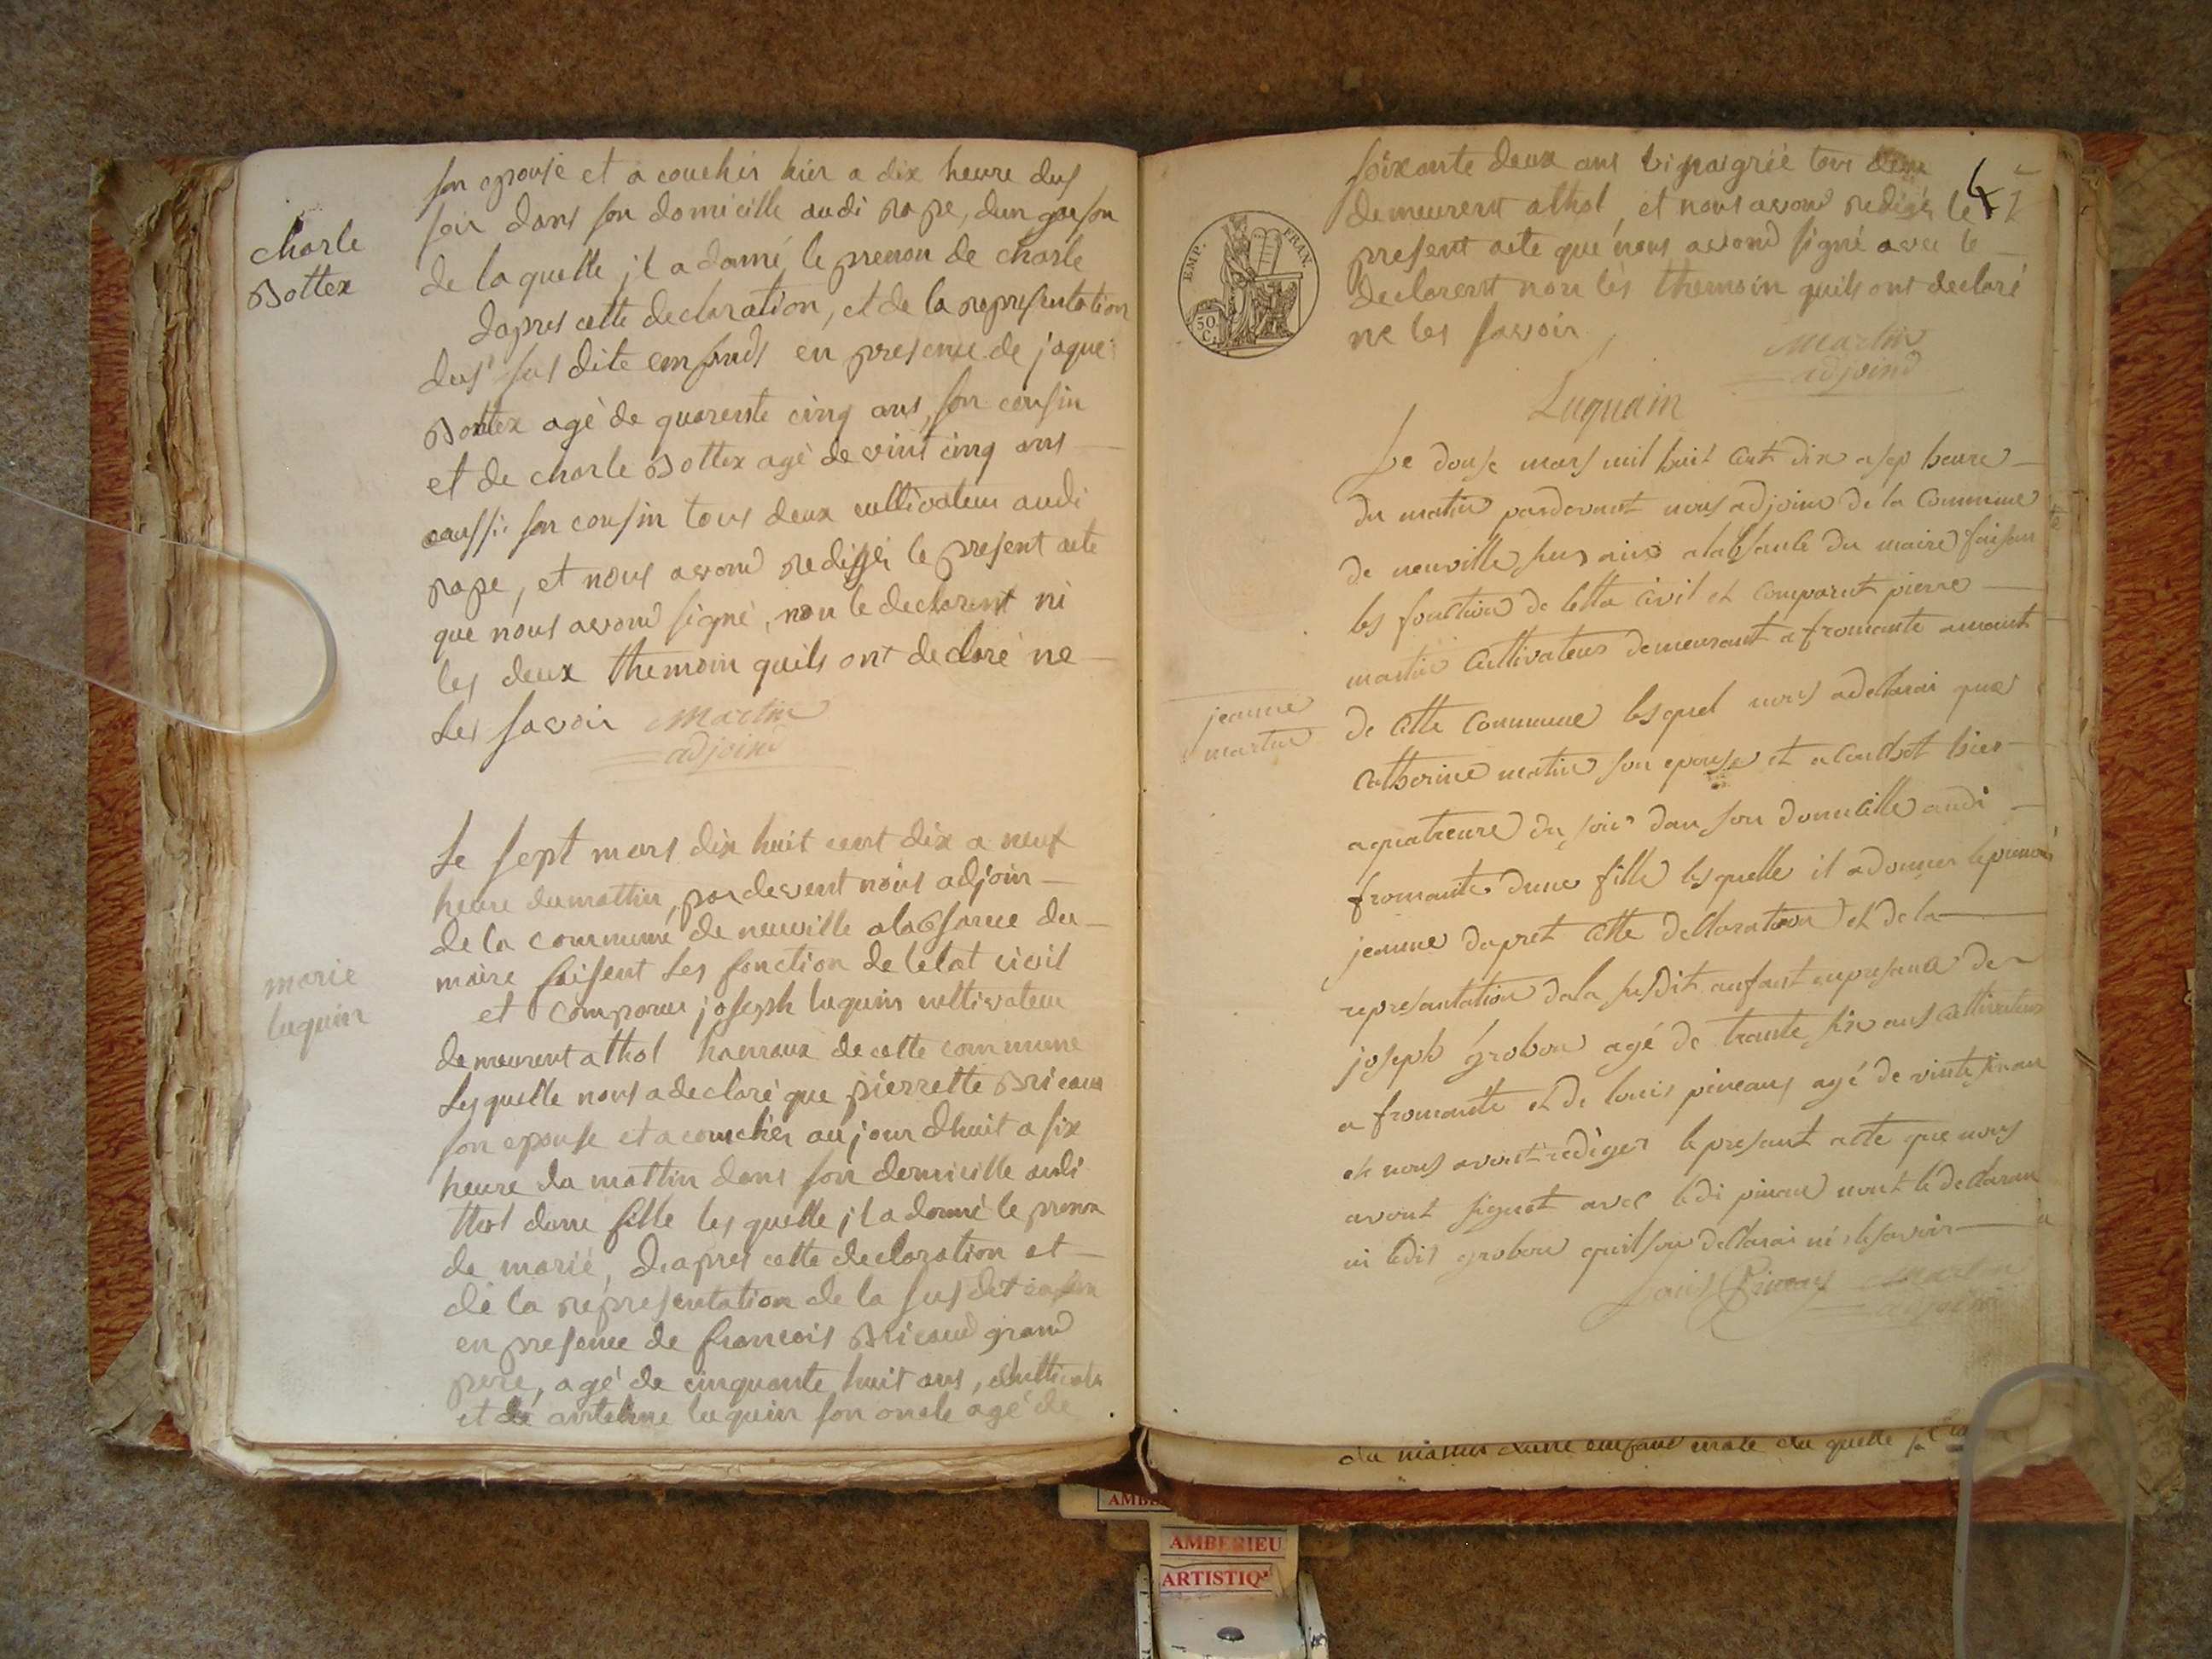 charle
Bottex
son epouse et a couchér hier a dix heure dus
soir dans son domicille audi rape, dun garson
de laquelle jl a donné le prenon de charle
dapres cette declaration, et de la representation
dus sus dite emfands en presence de jaques
Bottex agé de quarente cinq ans, son cousin
et de charle Bottex agé de vint cinq ans
aussi son cousin tous deux cultivateur audi
rape, et nous avond redigér le present acte
que nous avond signé, non le declarent ni
les deux themoin quils ont declaré ne
les savoir Martin
adjoind
marie
luquin
Le sept mars dix huit cent dix a neuf
heure du mattin, pardevent nous adjoin
de la commune de neuville alabsance du
maire faisent les fonction de letat civil
et comparu joseph luquin cultivateur
demeurent athol hamaux de cette commune
lesquelle nous adeclaré que pierrette Bricaud
son epouse et a couchér aujourdhuit a six
heure du mattin dans son domicille audi
thol dune fille lesquelle jl a donné le prenon
de marie, dapres cette declaration et
de la representation de la susdit
en presence de francois Bricaud grand
pere, agé de cinquante huit ans,
et de antelme luquin son oncle agé de
EMP. FRAN.
50
C.
soixante deux ans tous deux
demeurent athol, et nous avond redigér le
present acte que nous avond signé avec le
declarent non les themoin quils ont declaré
ne les savoir
Martin
adjoind
Luquain
jeanne
martin
Le douse mars mil huit cent dix a sep heure
du matin pardevant nous adjoind de la Commune
de neuville sus ains alabsance du maire faisan
les fonction de letta civil et comparut pierre
martin Cultivateur demeurant a fromante amaut
de cette Commune lesquel nous adeclarai que
Catherine matin son epouse et acouchet hier
aquatreure du soir dan son domicille audi
fromante dune fille lesquelle il adonner leprenon
jeanne dapret cette declaration et de la
represantation dala susdit anfant enpresance de
joseph grobon agé de trante six ans Cultivateur
a fromante et de louis pineaus agé de vinte
et nous avont rediger le presant acte que nous
avont signet avec ledi pinau nont le declaran
ni ledit grobon quilson declarai ni lesavoir
Louis Pineaus Martin
adjoind
du mattin dunne emfand male du quelle jl
AMBERIEU
ARTISTIQ